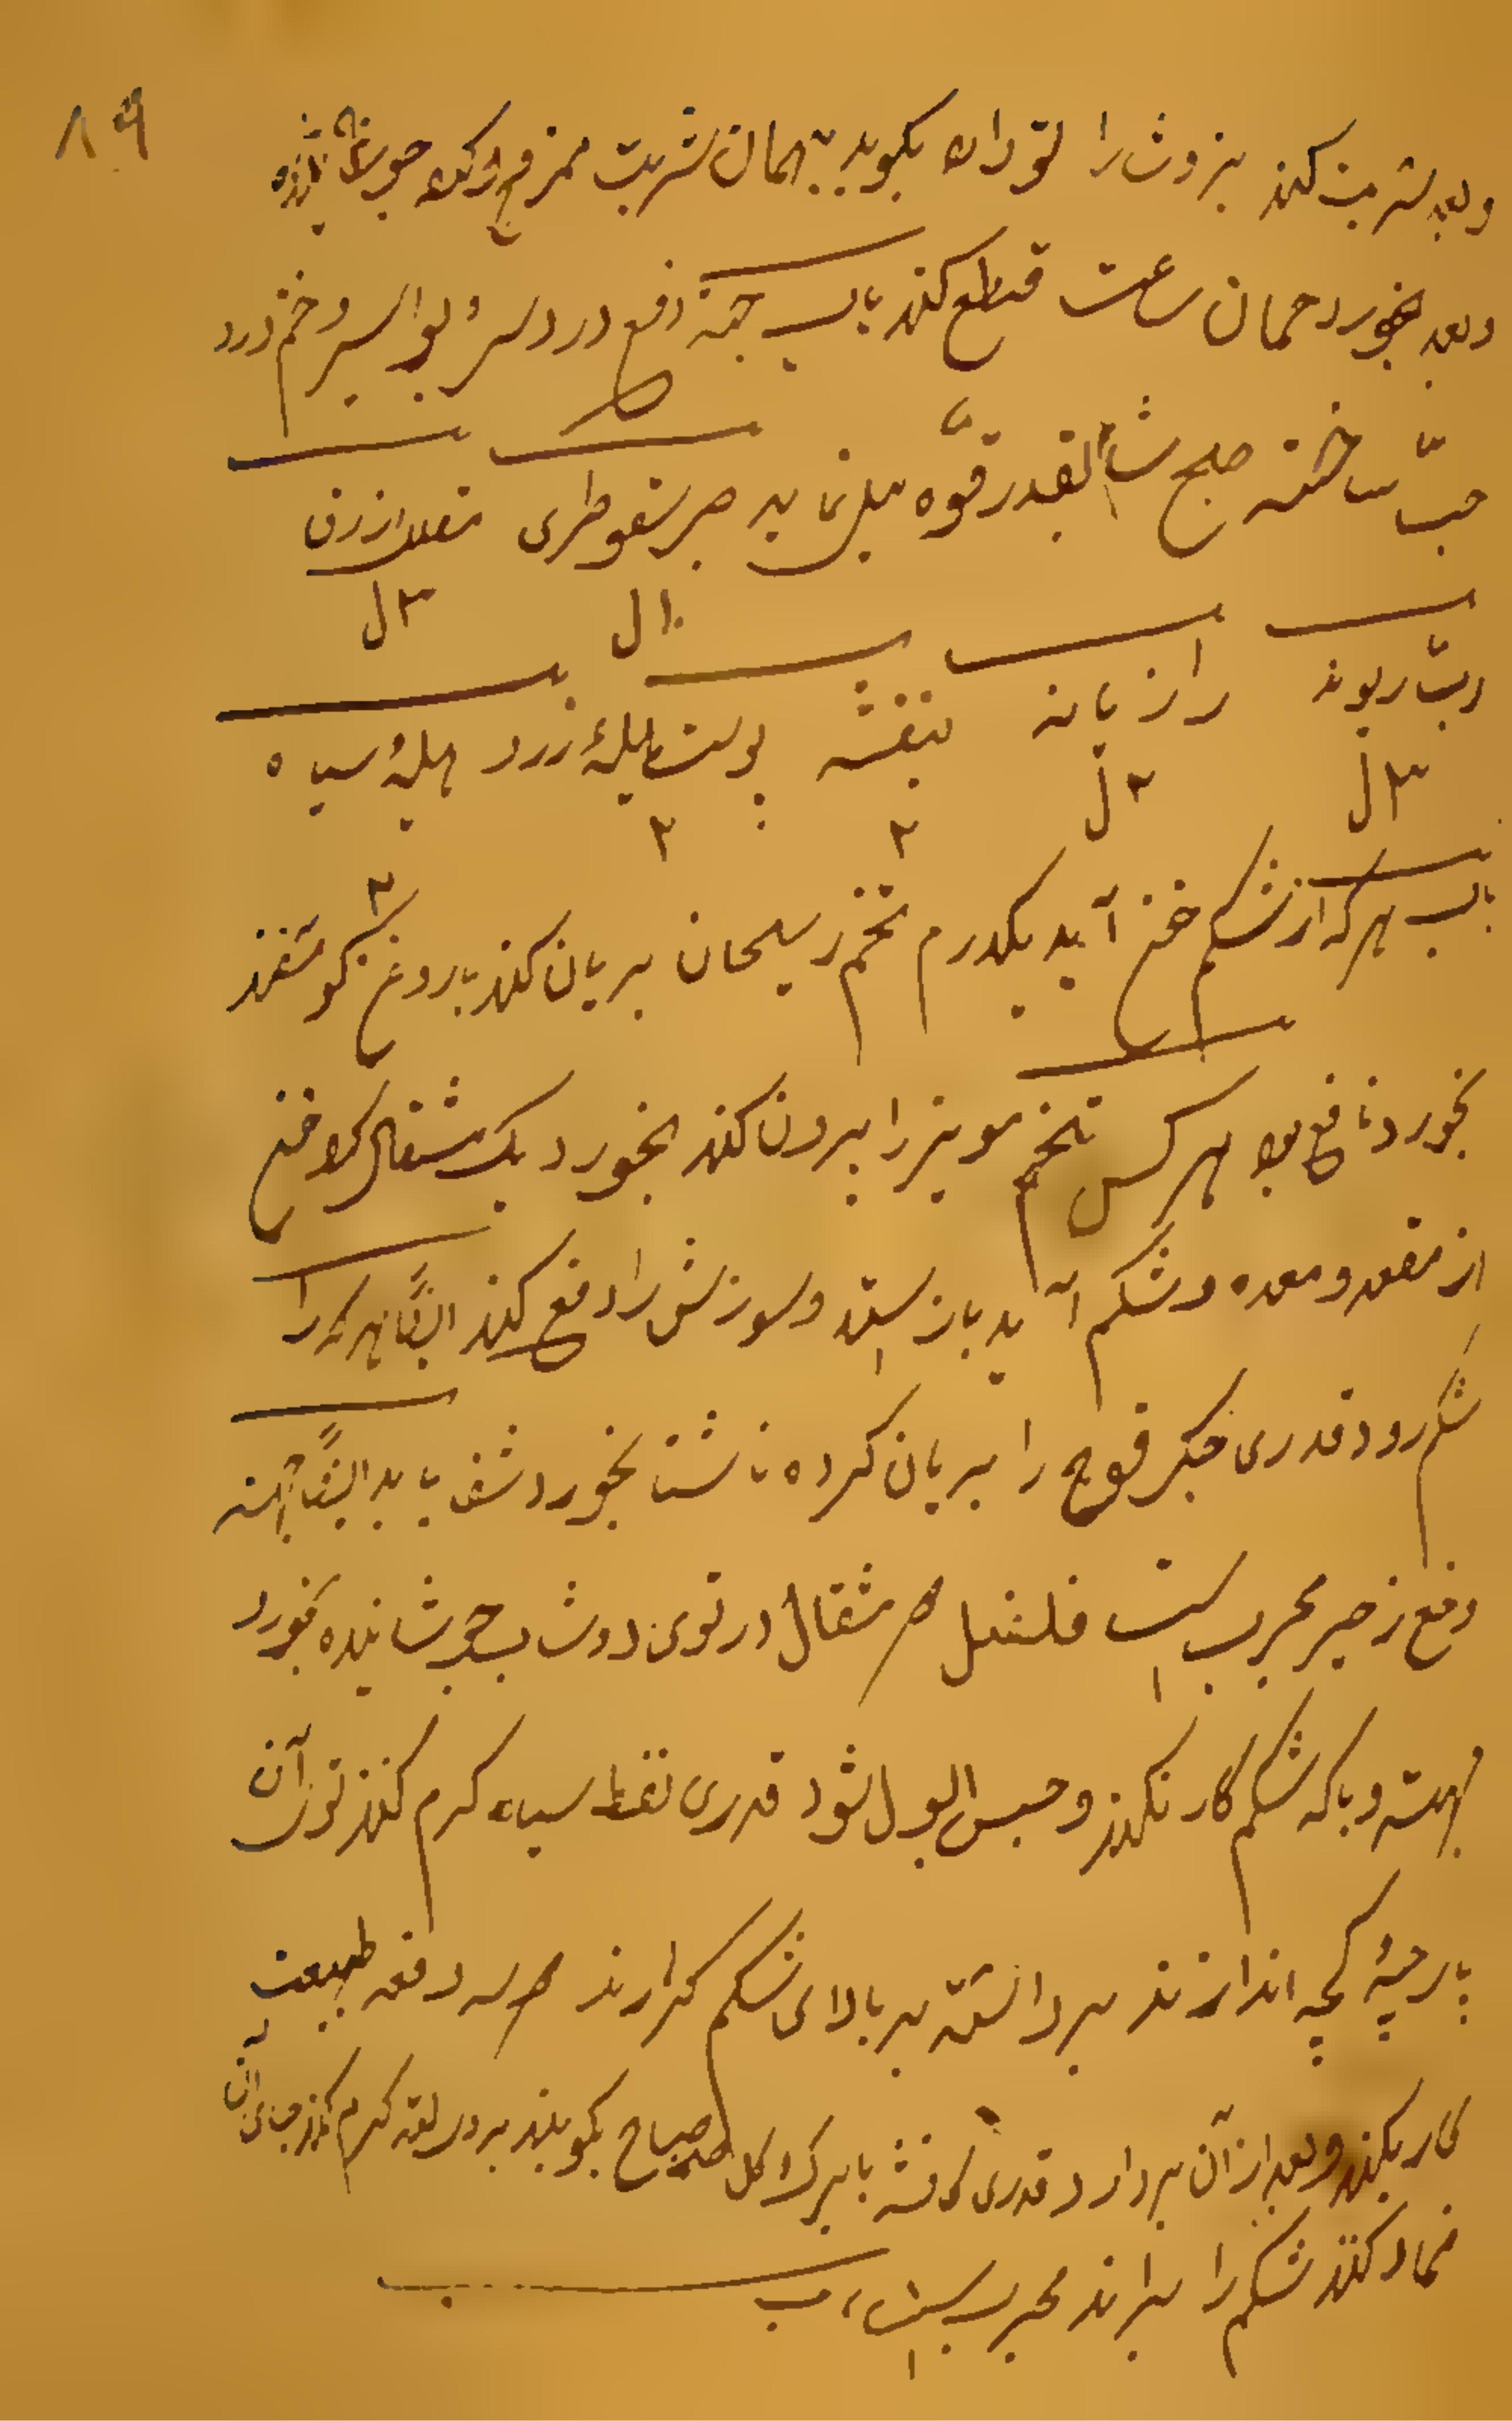 ۸۹
و بعد شربت کند بزوشا را تو داده بکوبد بهمان شربت ممزوج کرده
و بعد بخورد همان ساعت قطع کند باب جهة دفع درد سر و بواسیر و خم درد
حبّ ساخته صبح شام بقدر قوّه میل نماید صبر سقوطری مقل ازرق
۱۰ل ۳ل
ربّ ریوند رازیانه بنفشه پوست هلیلهٔ زرد هلیلهٔ سیاه
۳ل ۲ل ۲ ۲
۲
باب هر که از شکم خون آید یکدرم تخم ریحان بریان کند با روغن کوسفند
بخورد نافع بود هر کس تخم مویز را بیرون کند بخورد یک مثقال که اخون
از مقعد و معده و شکم آید باز ایستد و سوزش را دفع کند ایضًا هر که را
شکم رود قدری جکر قوچ را بریان کرده ناشتا بخورد شفا یابد ایضًا جهته
دفع زحیر مجرب است فلفل مثقال در توی دوشاب جوشانیده بخورد
جهته و با که شکم کار نکند و حبس البول شود قدری نفط سیاه کرم کنند توی آن
پارچهٔ کجه اندازند برداشته بر بالای شکم کزارند سه دفعه طبیعت
کار بکند و بعد از آن بردارد قدری کافشه با برک کل صباح بکوبند کرم کنند
ضماد کنند شکم را براند مجرب است